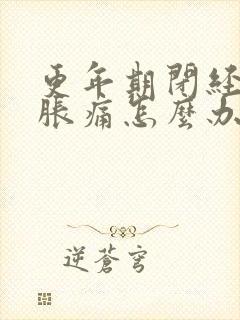 更年期閉経
脹痛怎麼办
逆蒼穹